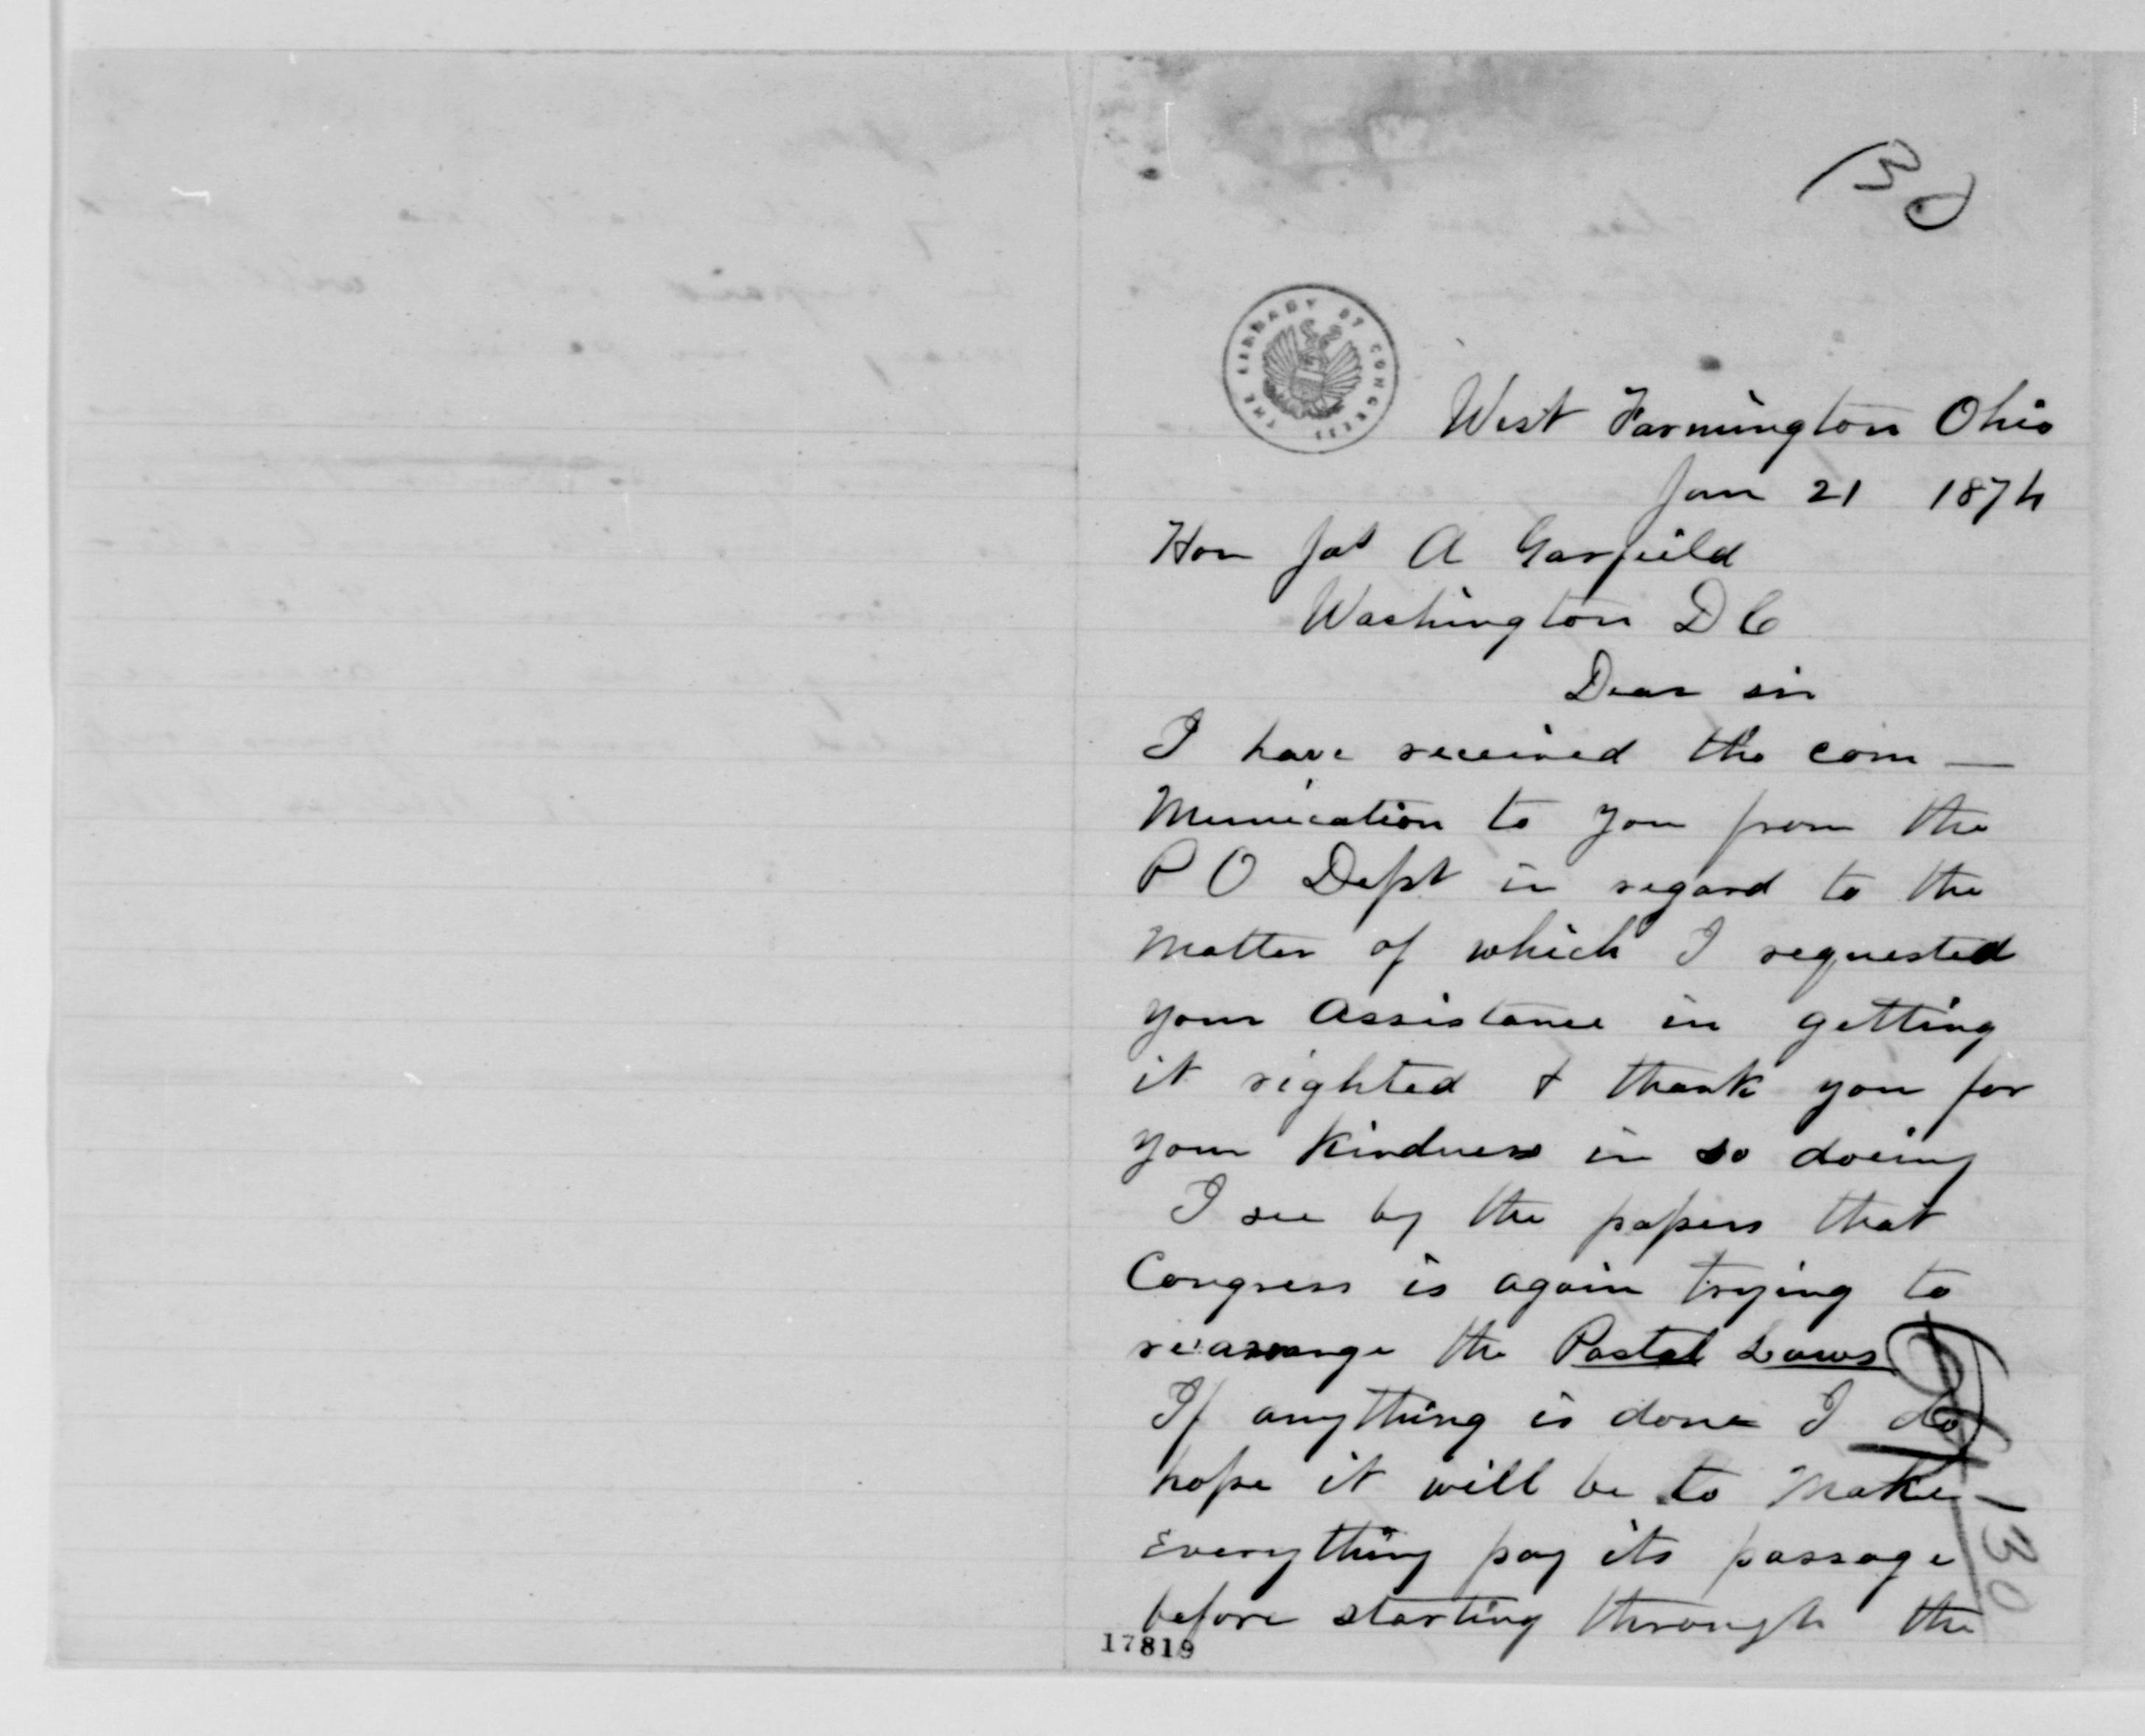 THE LIBRARY OF CONGRESS
West Farmington Ohio
Jan 21 1874
Hon Jas A Garfield
Washington D C
Dear sir
I have received the com —
munication to you from the
P O Dept in regard to the
matter of which I requested
your assistance in getting
it righted & thank you for
your kindness in so doeing
I see by the papers that
Congress is again trying to
rearrange the Postal Laws
If anything is done I do
hope it will be to make
everything pay its passage
before starting through the
130
17819